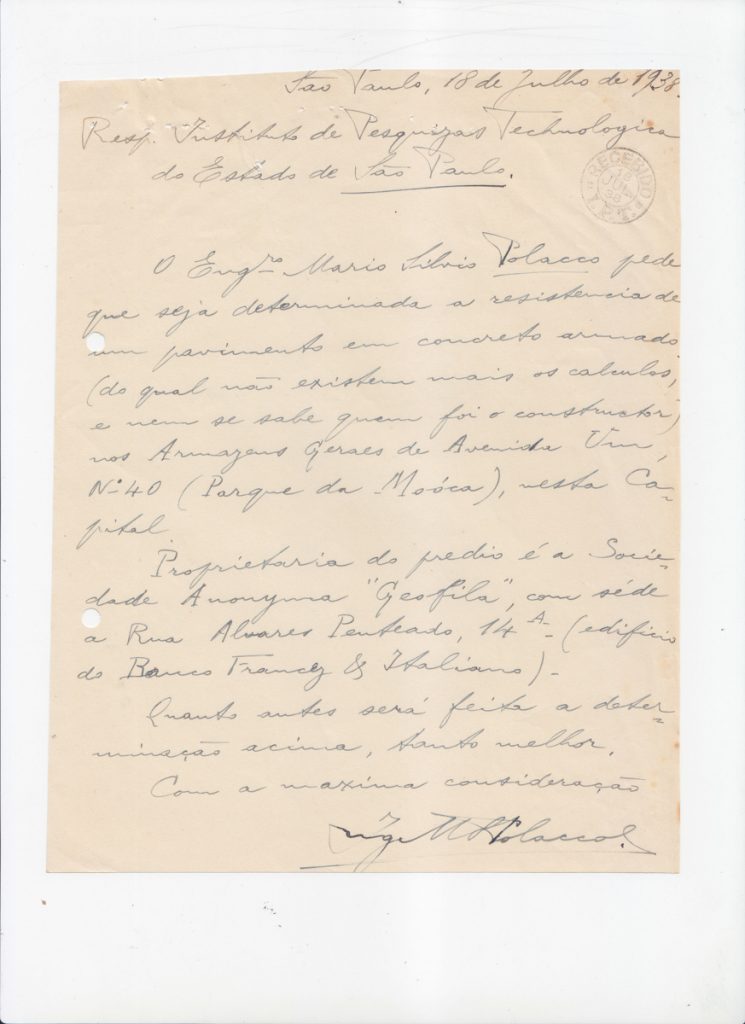 São Paulo, 18 de Julho de 1938.
Resp. Instituto de Pesquizas Technologica
do Estado de São Paulo.
RECEBIDO
18 JUL 38
I.P.T.
O Engro Mario Silvio Polacco pede
que seja determinada a resistencia de
um pavimento em concreto armado
(do qual não existem mais os calculos,
e nem se sabe quem foi o constructor)
nos Armazens Geraes de Avenida Um,
No 40 (Parque da Moóca), nesta Ca-
pital.
Proprietaria do predio é a Socie-
dade Anonyma "Geofila", com séde
a Rua Alvares Penteado, 14 A- (edificio
do Banco Francez & Italiano).-
Quanto antes será feita a deter-
minação acima, tanto melhor.
Com a maxima consideração
Ing. M S Polacco.